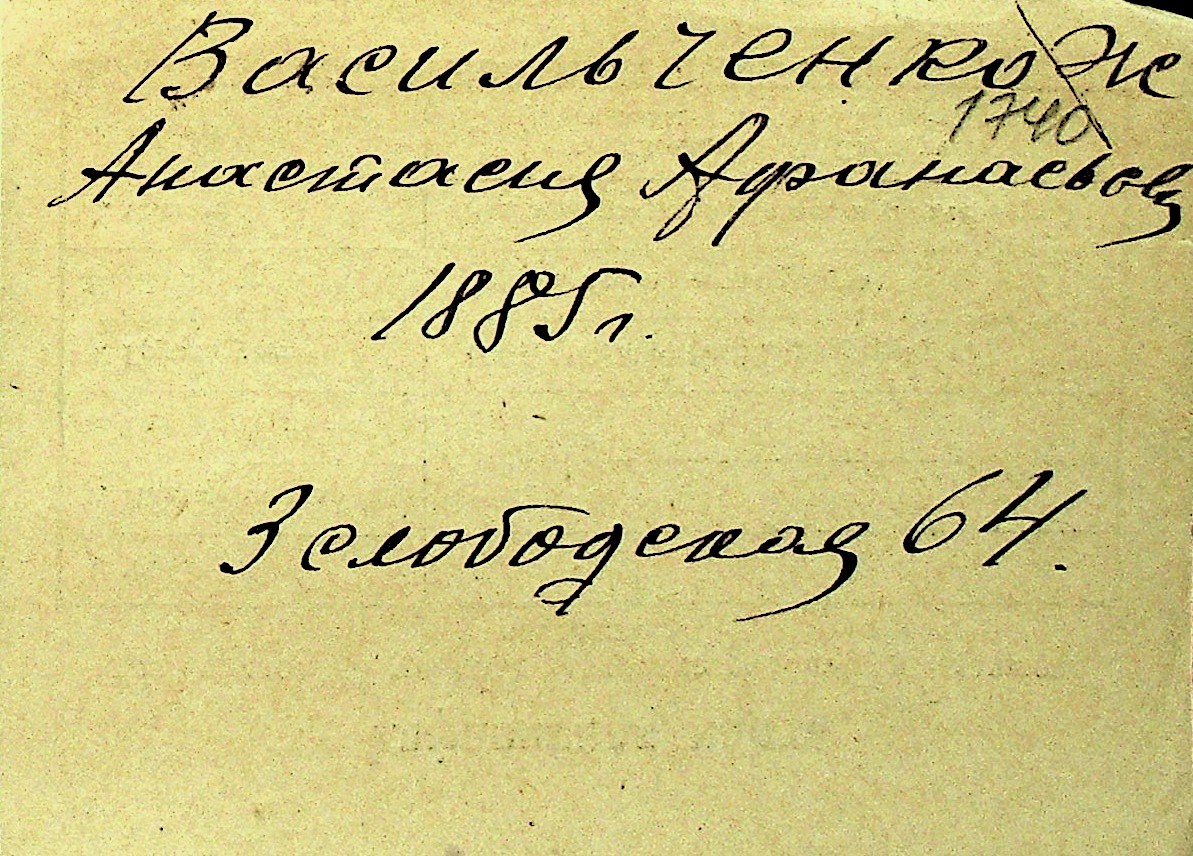 Васильченко Ж
1740
Анастасия Афанасьевна
1885 г.
3 слободская 64.